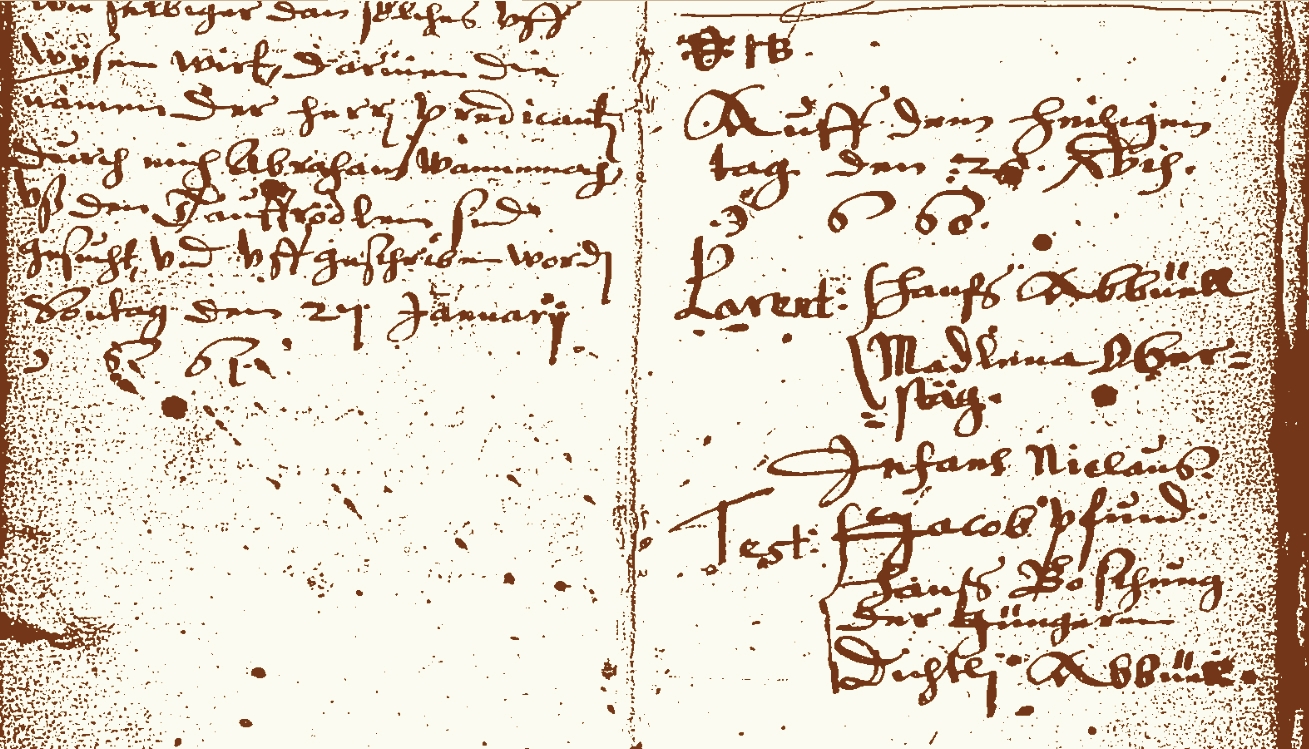 wie selbiger dan solches vff
wysen wirt, Darinnen die
namen der herr Predicant
durch mich Abraham Wannenmach
vß den Tauffrödlen sind
gesucht, vnd vffgeschriben word
Sontag den 27 January
1 6 61.
Auff dem heiligen
tag. den 26. Xbis.
1 6 60.
Parent: Hanß Abbüell
Madlena Ober=
stäg.
Infans Niclaus
Test: Jacob Pfund.
Hanß Boschung
der Jüngeren
Dichtli Abbüel.